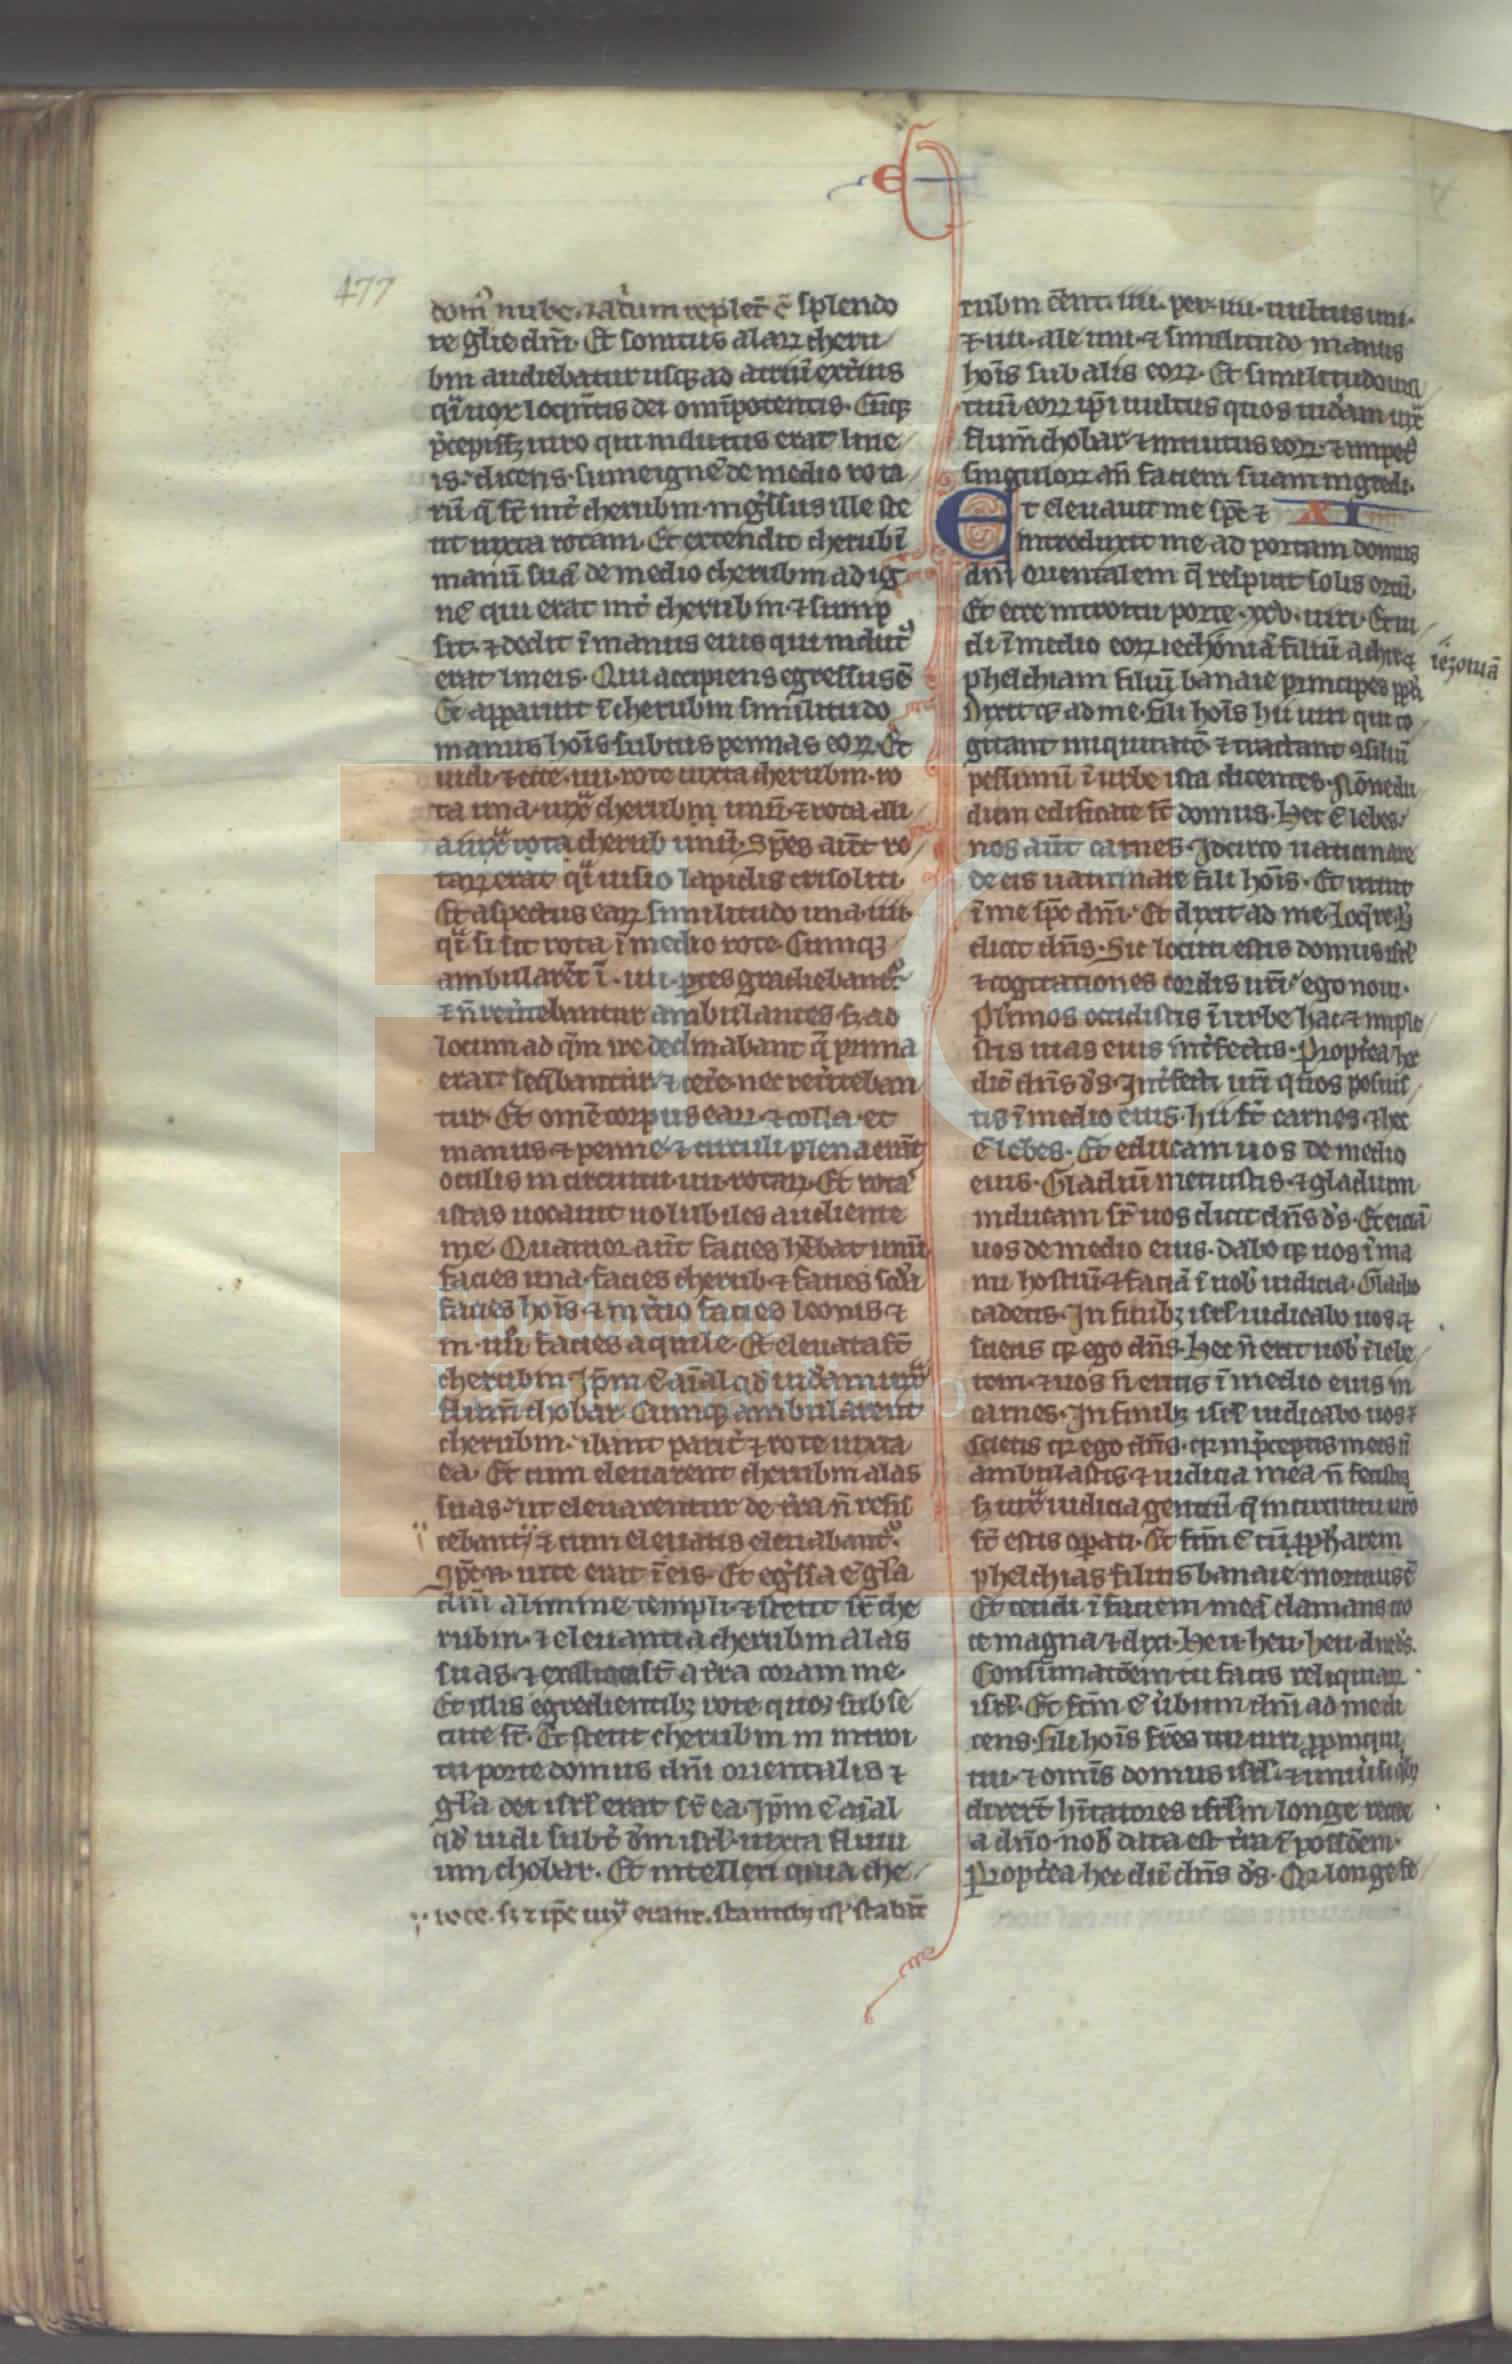 E
477
domꝰ nube ⁊ atͥum replet̄ ē splendo
re glie dn̄i Et sonitus alaꝝ cheru
bin audiebatur usqꝫ ad atriū ext͛ius
q̄i uox loquētis dei omīpotentis Cūqꝫ
p̄cepissꝫ uiro qui indutus erat line
is dicens sume ignē de medio rota
rū q̄ st̄ int͛ cherubin ingͥssus ille ste
tit iuxta rotam Et extendit cherubī
manū suā de medio cherubin ad ig
nē qui erat int͛ cherubin ⁊ sump
sit ⁊ dedit ī manus eius qui indutꝰ
erat lineis Qui accipiens egressus ē
Et apparuit ī cherubin similitudo
manus hoīs subtus pennas eoꝝ Et
uidi ⁊ ecce iiii rote iuxta cherubin ro
ta una iuxͣ cherubin unū ⁊ rota ali
a iuxͣ rota cherub unū Spēs aūt ro
taꝝ erat q̄i uisio lapidis crisoliti
Et aspectus eaꝝ similitudo una iiii
q̄i si sit rota ī medio rote Cumqꝫ
ambularēt ī iiii ptes gradiebantᷣ
⁊ n̄ reūtebantur ambulantes sꝫ ad
locum ad q̄m ire declinabant q̄ prima
erat seq̄bantur ⁊ cet͛e nec reūteban
tur Et omē corpus eaꝝ ⁊ colla et
manus ⁊ penne ⁊ circuli plena erāt
oculis in circuitu iiii rotaꝝ Et rotaˢ
istas uocauit uolubiles audiente
me Quatuor aūt facies hēbat unū
facies una facies cherub ⁊ facies scd̄a
facies hoīs ⁊ in tͥcio facies leonis ⁊
in iiii facies aquile Et eleuata st̄
cherubin Ip̄m ē aīal qd̓ uidͤam iuxͣ
flumē chobar Cumqꝫ ambularent
cherubin ibant parit͛ ⁊ rote iuxta
ea Et cum eleuarent cherubin alas
suas ut eleuarentur de tͤra n̄ resi
tebantᷣ ⁊ cum eleuatis eleuabantᷣ
sp̄c n̄ uite erat ī eis Et egͤssa ē gl̄a
dn̄i a limine templi ⁊ stetit sr̄ che
rubin ⁊ eleuantia cherubin alas
suas ⁊ exaltata st̄ a tͤra coram me
Et illis egredientibꝫ rote quoqꝫ subse
cute st̄ Et stetit cherubin in introi
tu porte domus dn̄i orientalis ⁊
gl̄a dei isrl̄ erat sr̄ ea Ip̄m ē aīal
qd̓ uidi subt͛ dm̄ isrl̄ iuxta fluui
um chobar Et intellexi quia che
uoce sꝫ ⁊ ip̄e erant stantibꝫ illˢ stabāt
rubin eēnt iiii per iiii uultus uni
⁊ iiii ale uni ⁊ similitudo manus
hoīs sub alis eoꝝ Et similitudo uul
tuū eoꝝ ip̄i uultus quos uidͤam iuxͣ
flumē chobar ⁊ intuitus eoꝝ ⁊ impetꝰ
singuloꝝ an̄ faciem suam ingredi
Et eleuauit me sp̄c ⁊ XI
introduxit me ad portam domus
dn̄i orientalem q̄ respicit solis ortū
Et ecce introitu porte xxv uiri Et ui
di ī medio eoꝝ iechoniā filiū
iēzoniā
phelchiam filiū banaie principes ppl̄i
Dixit qꝫ ad me fili hoīs hii uiri qui co
gitant iniquitatē ⁊ tractant ꝯsiliū
pessimū ī urbe ista dicentes Nōne du
dum edificate st̄ domus Hec ē lebes
nos aūt carnes Idcirco uaticinare
de eis uaticinare fili hoīs Et irruit
ī me sp̄c dn̄i Et dixit ad me Loq̄re h̓
dicit dn̄s Sic locuti estis domus isrl̄
⁊ cogitationes cordis ur̄i ego noui
Pl̓imos occidistis ī urbe hac ⁊ imple
stis uias eius int͛fectis Propt͛ea hec
dic̄ dn̄s d̓s Int͛fecti ur̄i quos posuis
tis ī medio eius hii st̄ carnes ⁊ hec
ē lebes Et educam uos de medio
eius Gladiū metuistis ⁊ gladium
inducam sr̄ uos dicit dn̄s d̓s Et eiciā
uos de medio eius dabo qꝫ uos ī ma
nu hostiū ⁊ faciā ī uob̓ iudicia Gladio
cadetis In finibꝫ isrl̄ iudicabo uos ⁊
scietis qꝛ ego dn̄s Hec n̄ erit uob̓ ī lebe
tem ⁊ uos n̄ eritis ī medio eius in
carnes In finibꝫ isrl̄ iudicabo uos ⁊
Scietis qꝛ ego dn̄s qꝛ in p̄ceptis meis n̄
ambulastis ⁊ iudicia mea n̄ fecistis
sꝫ iuxͣ iudicia gentiū q̄ in circuitu uro
st̄ estis opati Et fc̄m ē cū ꝓph̄arem
phelchias filius banaie mortuus ē
Et cecidi ī faciem meā clamans uo
ce magna ⁊ dixi Heu heu heu dn̄e d̓s
Consūmatōem tu facis reliquiaꝝ
isrl̄ Et fc̄m ē ūbum dn̄i ad me di
cens Fili hoīs fr̄es tui uiri ꝓpinqui
tui ⁊ omīs domus isrl̄ ⁊ uniūsi qͥbꝫ
dixer̄t hītatores ihrl̄m longe recede
a dn̄o nob̓ data est tͤra ī possōem
Propt͛ea hec dic̄ dn̄s d̓s Qꝛ longe fe